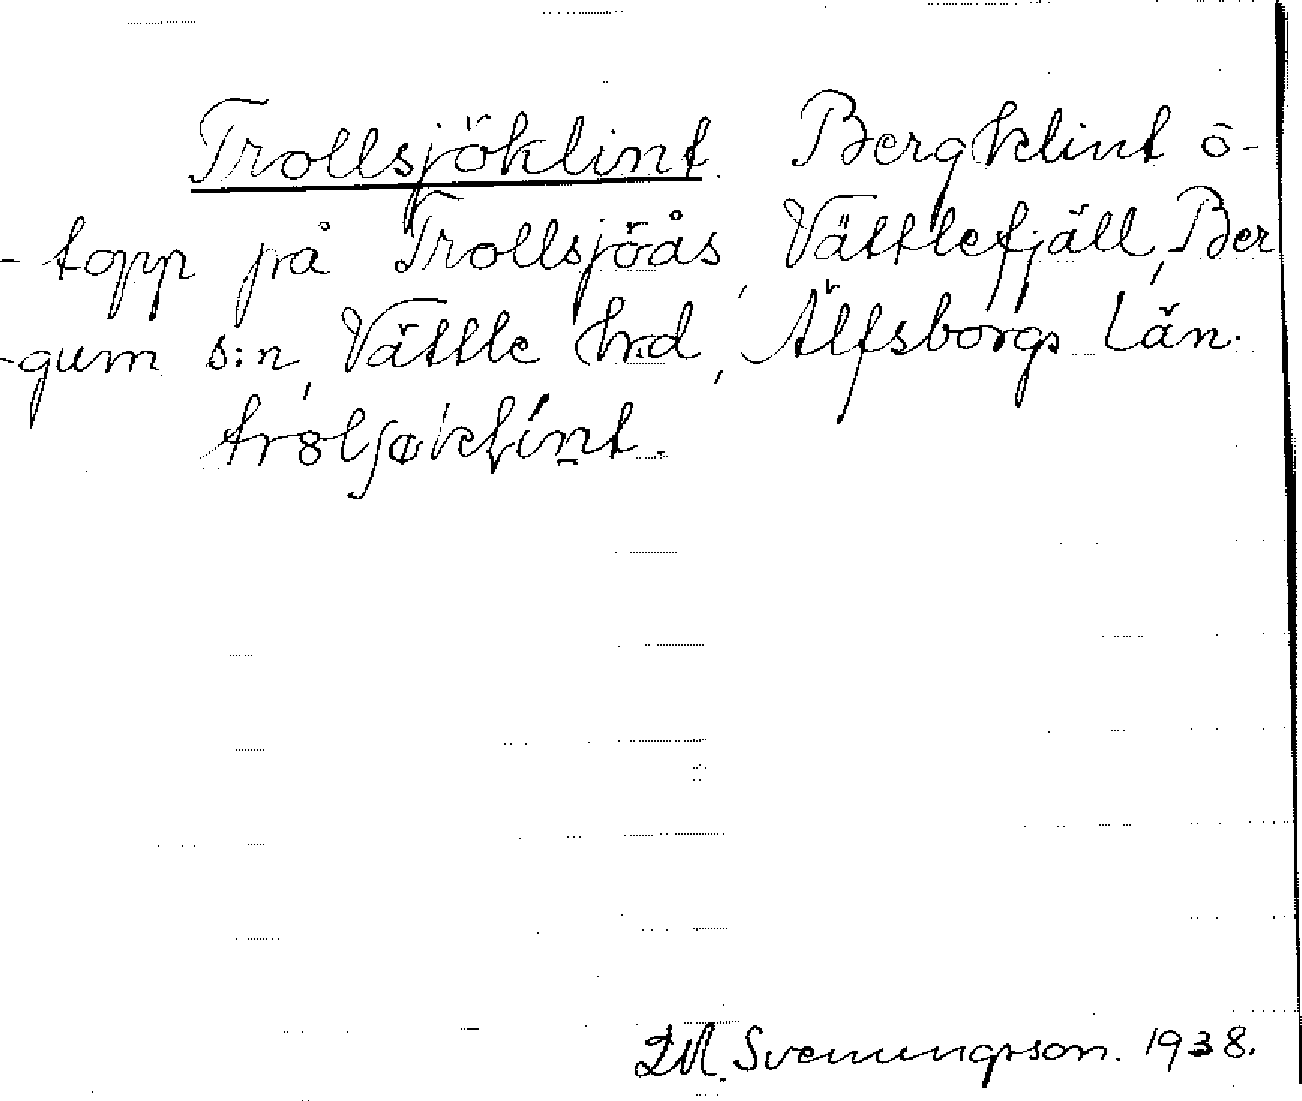 Trollsjöklint. Bergklint ö-
- topp på Trollsjöås, Vättlefjäll, Ber
-gum s:n, Vättle hrd, Älfsborgs Län.
Svenungson. 1938.